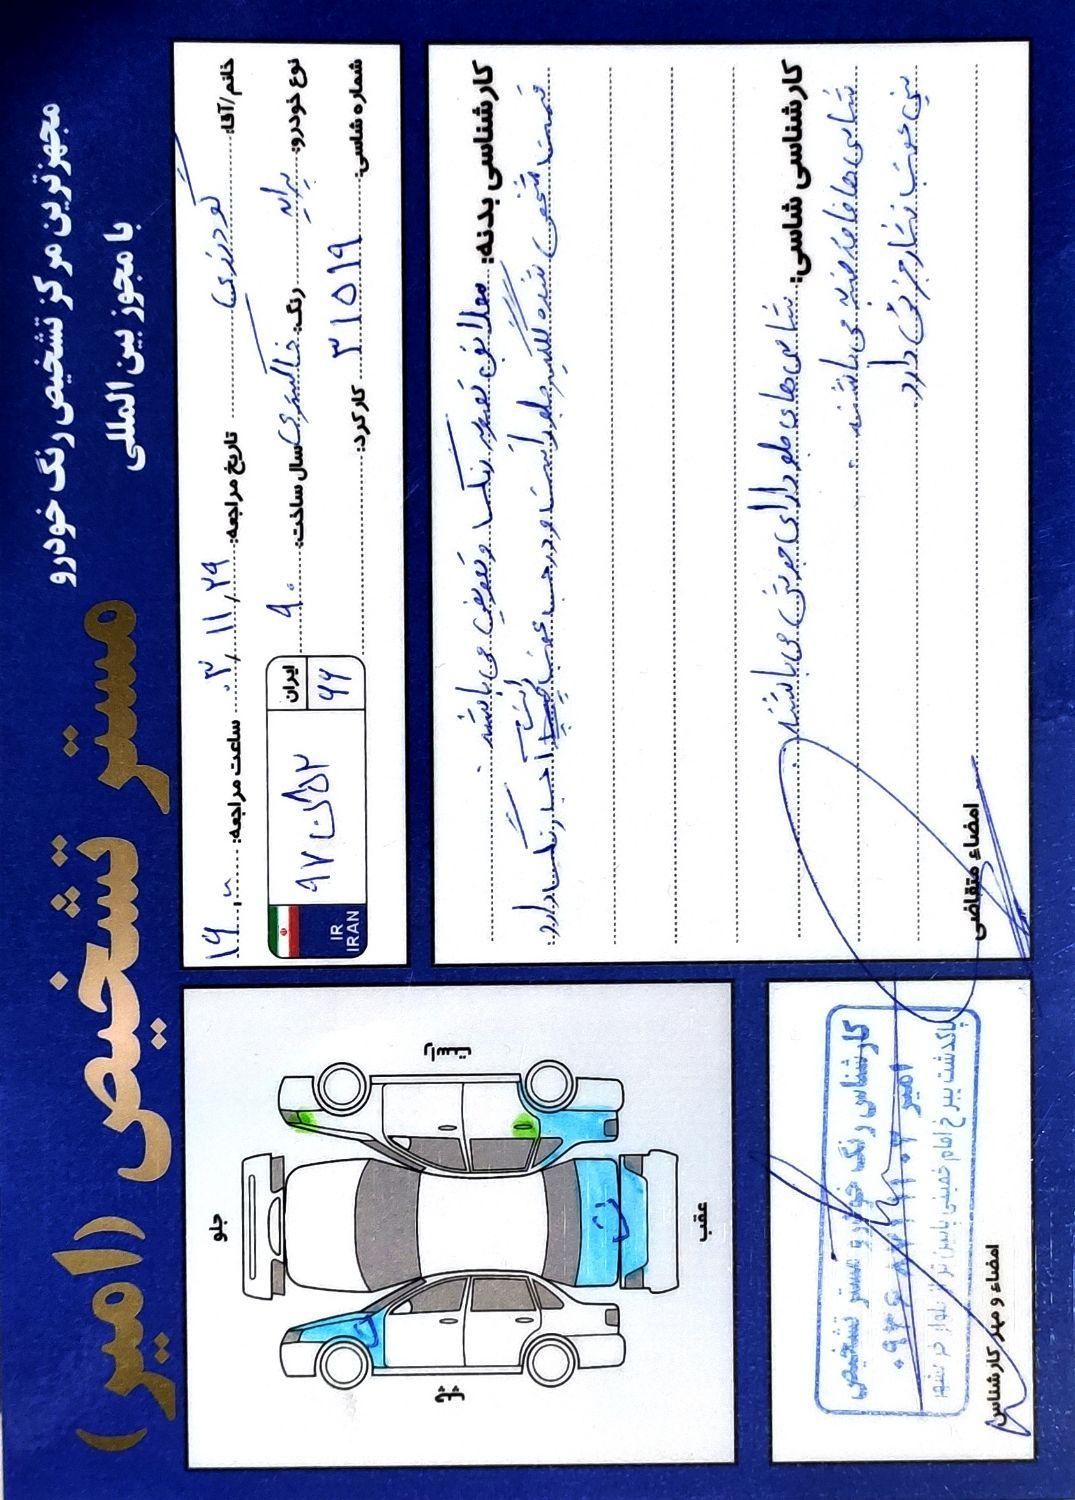 مجهزترین مرکز تشخیص رنگ خودرو
با مجوز بین المللی
مستر تشخیص (امیر)
خانم/آقا: گودرزی تاریخ مراجعه: ۰۳/۱۱/۲۹ ساعت مراجعه:
نوع خودرو: پراید رنگ: خاکستری سال ساخت: ۹۰
شماره شاسی: کارکرد: ۳۱۵۱۹
ایران
IR
IRAN
کارشناسی بدنه: مطابق تصویر رنگ و تعویض می باشد.
قسمت مشخص شده گلگیر جلو راست و درب عقب راست آنجا رنگ دارد.
کارشناسی شاسی: شاسی های جلو دارای جوش می باشند
شاسی ها فاقد ضربه می باشند.
سینی عقب دارد
امضاء متقاضی
راست
جلو
عقب
چپ
ت
ت
کارشناس رنگ خودرو مستر تشخیص
امیر
پاکدشت امام خمینی پایین تر از بلوار
امضاء و مهر کارشناس